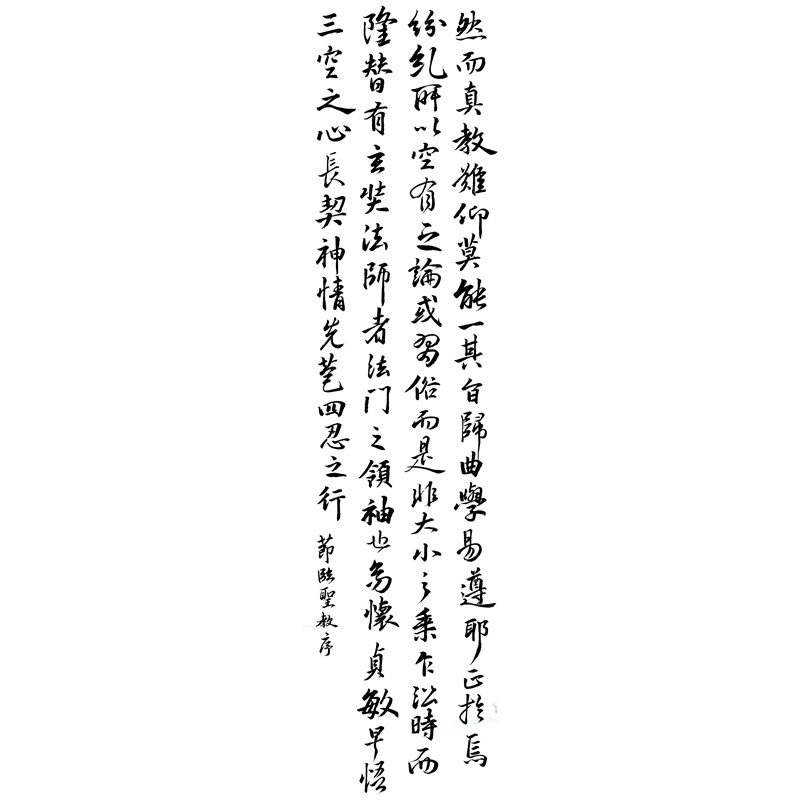 然而真教難仰莫能一其旨歸曲學易遵耶正於焉
紛糺所以空有之論或習俗而是非大小之乘乍沿時而
隆替有玄奘法師者法門之領袖也幼懷貞敏早悟
三空之心長契神情先苞四忍之行
節臨聖教序